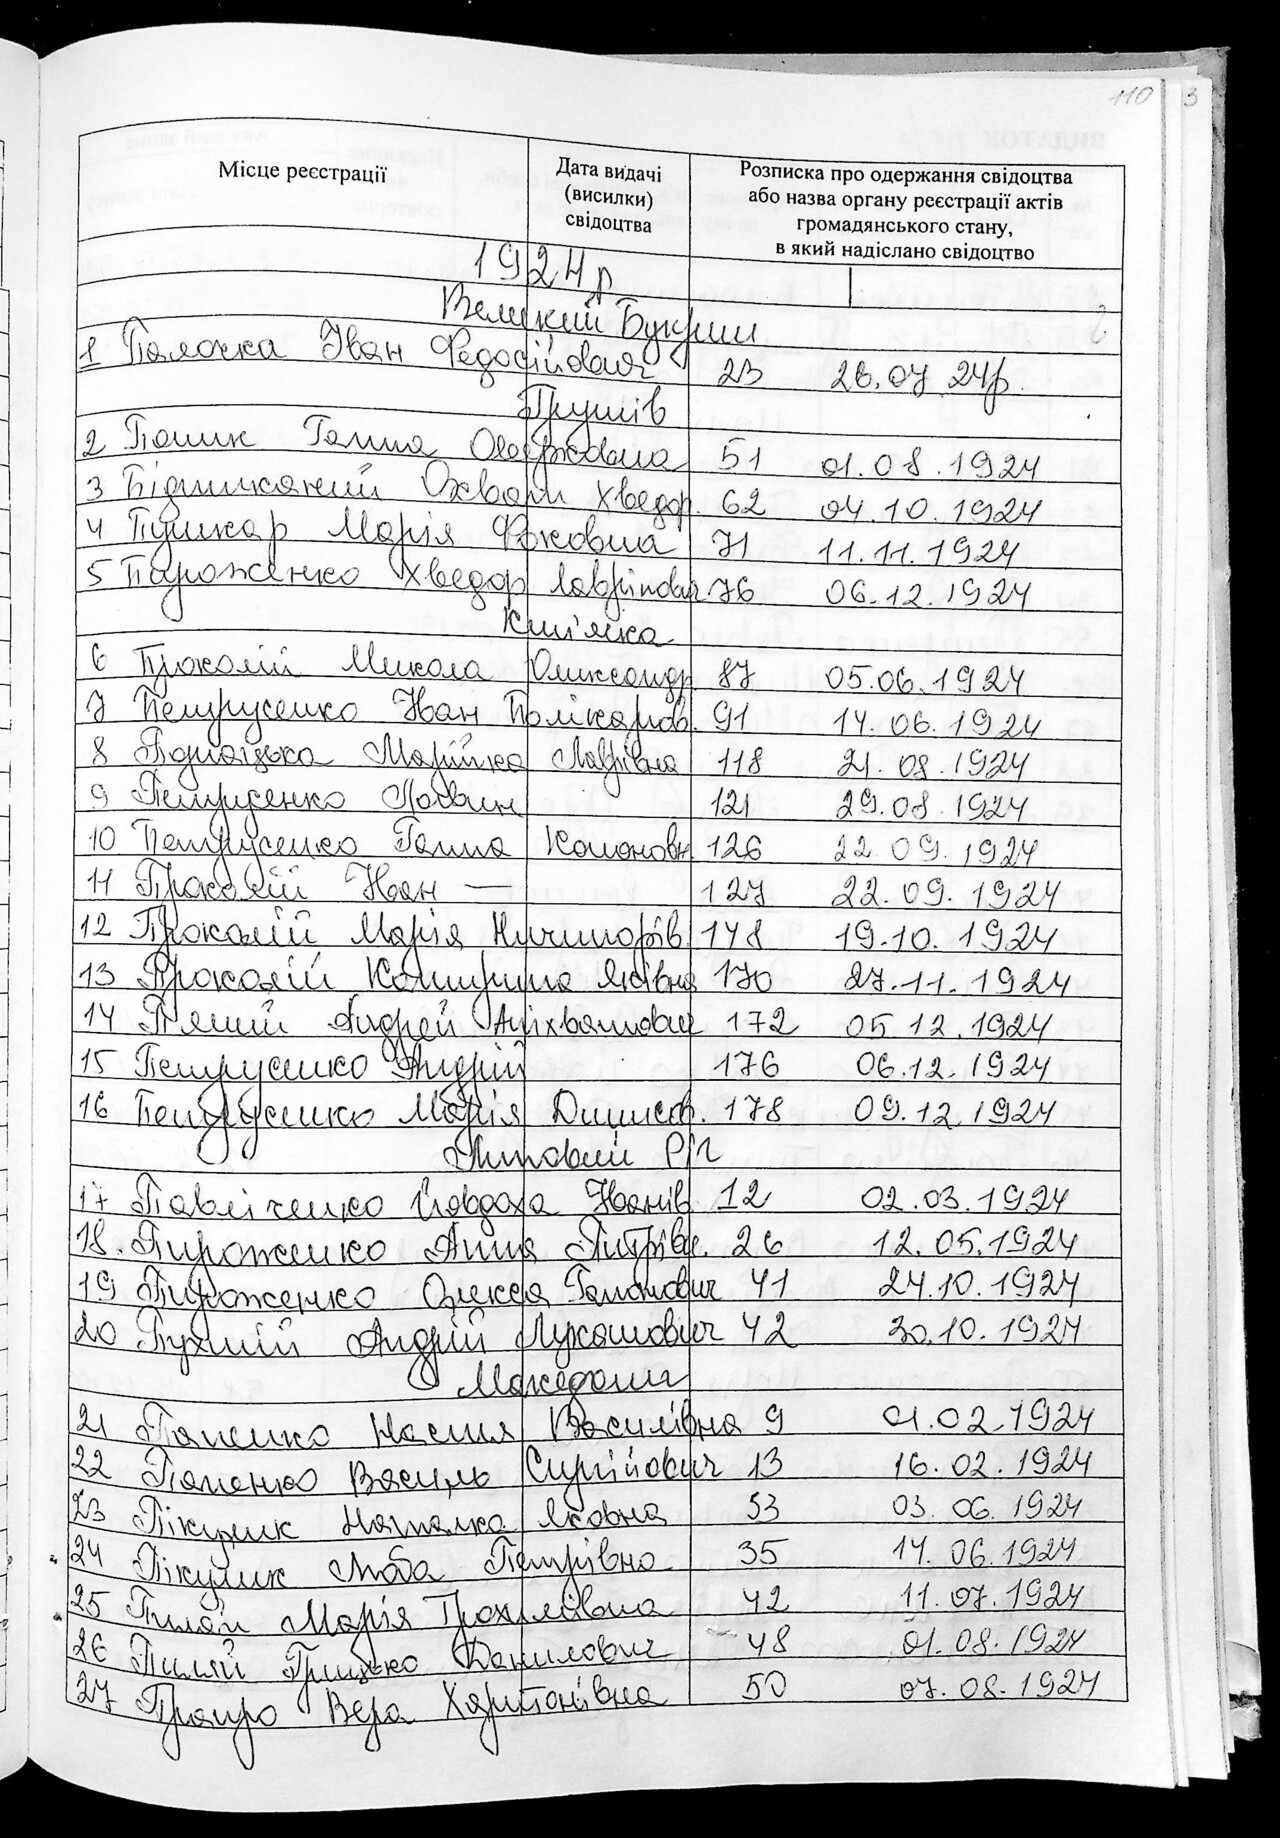 110 3
Місце реєстрації
Дата видачі
(висилки)
свідоцтва
Розписка про одержання свідоцтва
або назва органу реєстрації актів
громадянського стану,
в який надіслано свідоцтво
1924 р
Великий Букрин
1 Палочка Іван Федосійович 23 26.07 24р.
Грушів
2 Пашик Ганна 51 01.08.1924
3 Хведор. 62 04.10.1924
4 Пушкар Марія Фоковна 71 11.11.1924
5 Пароженко Хведор Лаврінович 76 06.12.1924
6 Прокопій Микола Олександр 87 05.06.1924
7 Петрусенко Іван Полікарпов. 91 14.06.1924
8 Марійка Лаврівна 118 21.08.1924
9 Петрусенко Логвин 121 29.08.1924
10 Петрусенко Ганна Кононовн. 126 22.09.1924
11 Прокопій Іван — 127 22.09.1924
12 Прокопій Марія Ничипорів. 148 19.10.1924
13 Прокопій Катирина Яківна 170 27.11.1924
14 Андрей 172 05.12.1924
15 Петрусенко Андрій 176 06.12.1924
16 Петрусенко Марія Денисов. 178 09.12.1924
Липовий Ріг
17 Павліченко Іванів. 12 02.03.1924
18. Пироженко Анна Питрівн. 26 12.05.1924
19 Пироженко Олексія Гапонович 41 24.10.1924
20 Пухлій Андрій Лукашович 42 30.10.1924
Македони
21 Папенко Насиля Василівна 9 01.02.1924
22 Папенко Василь Сиргійович 13 16.02.1924
23 Пікулик Наталка Яковна 33 03.06.1924
24 Пікулик Люба Петрівна 35 14.06.1924
25 Пиляй Марія Трохимівна 42 11.07.1924
26 Пиляй Грицько Данилович 48 01.08.1924
27 Вера Харитонівна 50 07.08.1924